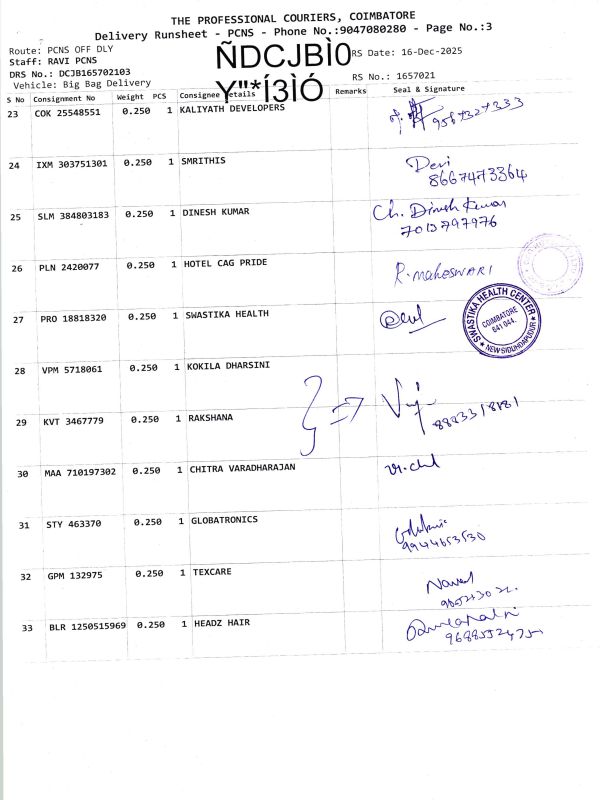 THE PROFESSIONAL COURIERS, COIMBATORE
Delivery Runsheet - PCNS - Phone No.:9047080280 - Page No.:3
Route: PCNS OFF DLY
ÑDCJBÌ0 RS Date: 16-Dec-2025
Staff: RAVI PCNS
DRS No.: DCJB165702103
Y"*Í3ÌÓ RS No.: 1657021
Vehicle: Big Bag Delivery
S No Consignment No Weight PCS Consignee etails Remarks Seal & Signature
23 COK 25548551 0.250 1 KALIYATH DEVELOPERS
24 IXM 303751301 0.250 1 SMRITHIS Devi
8667473364
25 SLM 384803183 0.250 1 DINESH KUMAR Ch. Dinesh Kumar
7013797976
26 PLN 2420077 0.250 1 HOTEL CAG PRIDE R. maheswARI
27 PRO 18818320 0.250 1 SWASTIKA HEALTH
SWASTIKA HEALTH CENTER
COIMBATORE
641 044.
NEW SIDHAPUDUR
28 VPM 5718061 0.250 1 KOKILA DHARSINI
29 KVT 3467779 0.250 1 RAKSHANA
8883318181
30 MAA 710197302 0.250 1 CHITRA VARADHARAJAN
31 STY 463370 0.250 1 GLOBATRONICS
9944653530
32 GPM 132975 0.250 1 TEXCARE
33 BLR 1250515969 0.250 1 HEADZ HAIR